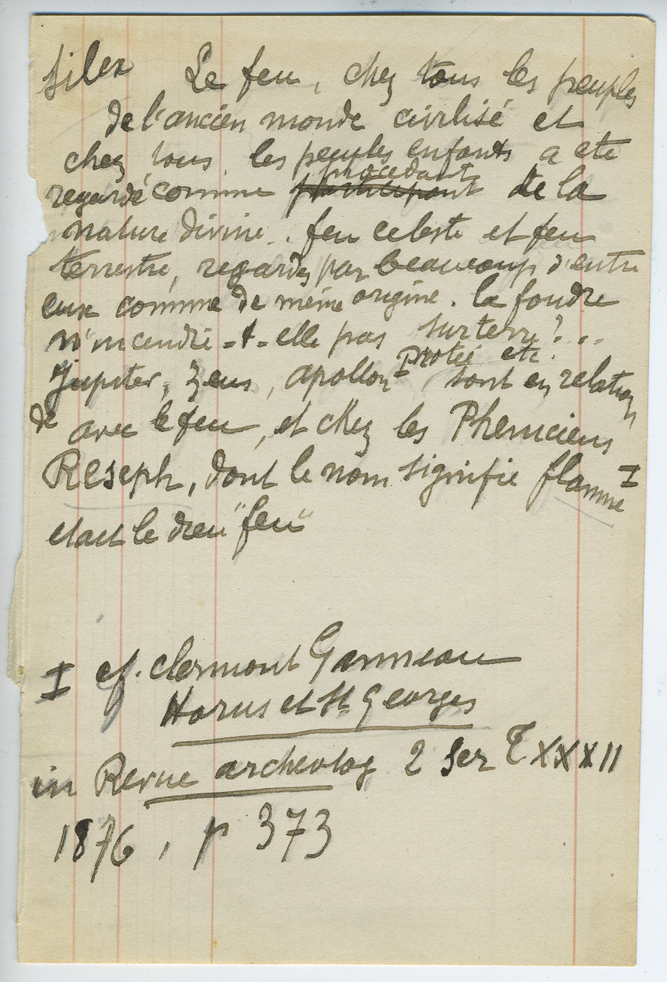 Silex Le feu, chez tous les peuples
de l'ancien monde civilisé et
chez tous les peuples enfants a ete
procedant
regardé comme participant de la
nature divine.. feu celeste et feu
terrestre, regardés par beaucoup d'entre
eux comme de même origine. la foudre
n'incendie-t-elle pas sur terre?...
Protée etc.
Jupiter, Zeus, apollon I sont en relation
de avec le feu, et chez les Pheniciens
Reseph, dont le nom signifie flamme I
etait le dieu "feu"
I cf. Clermont Ganneau
Horus et St Georges
in Revue archeolog 2 Ser T XXXII
1876, p 373